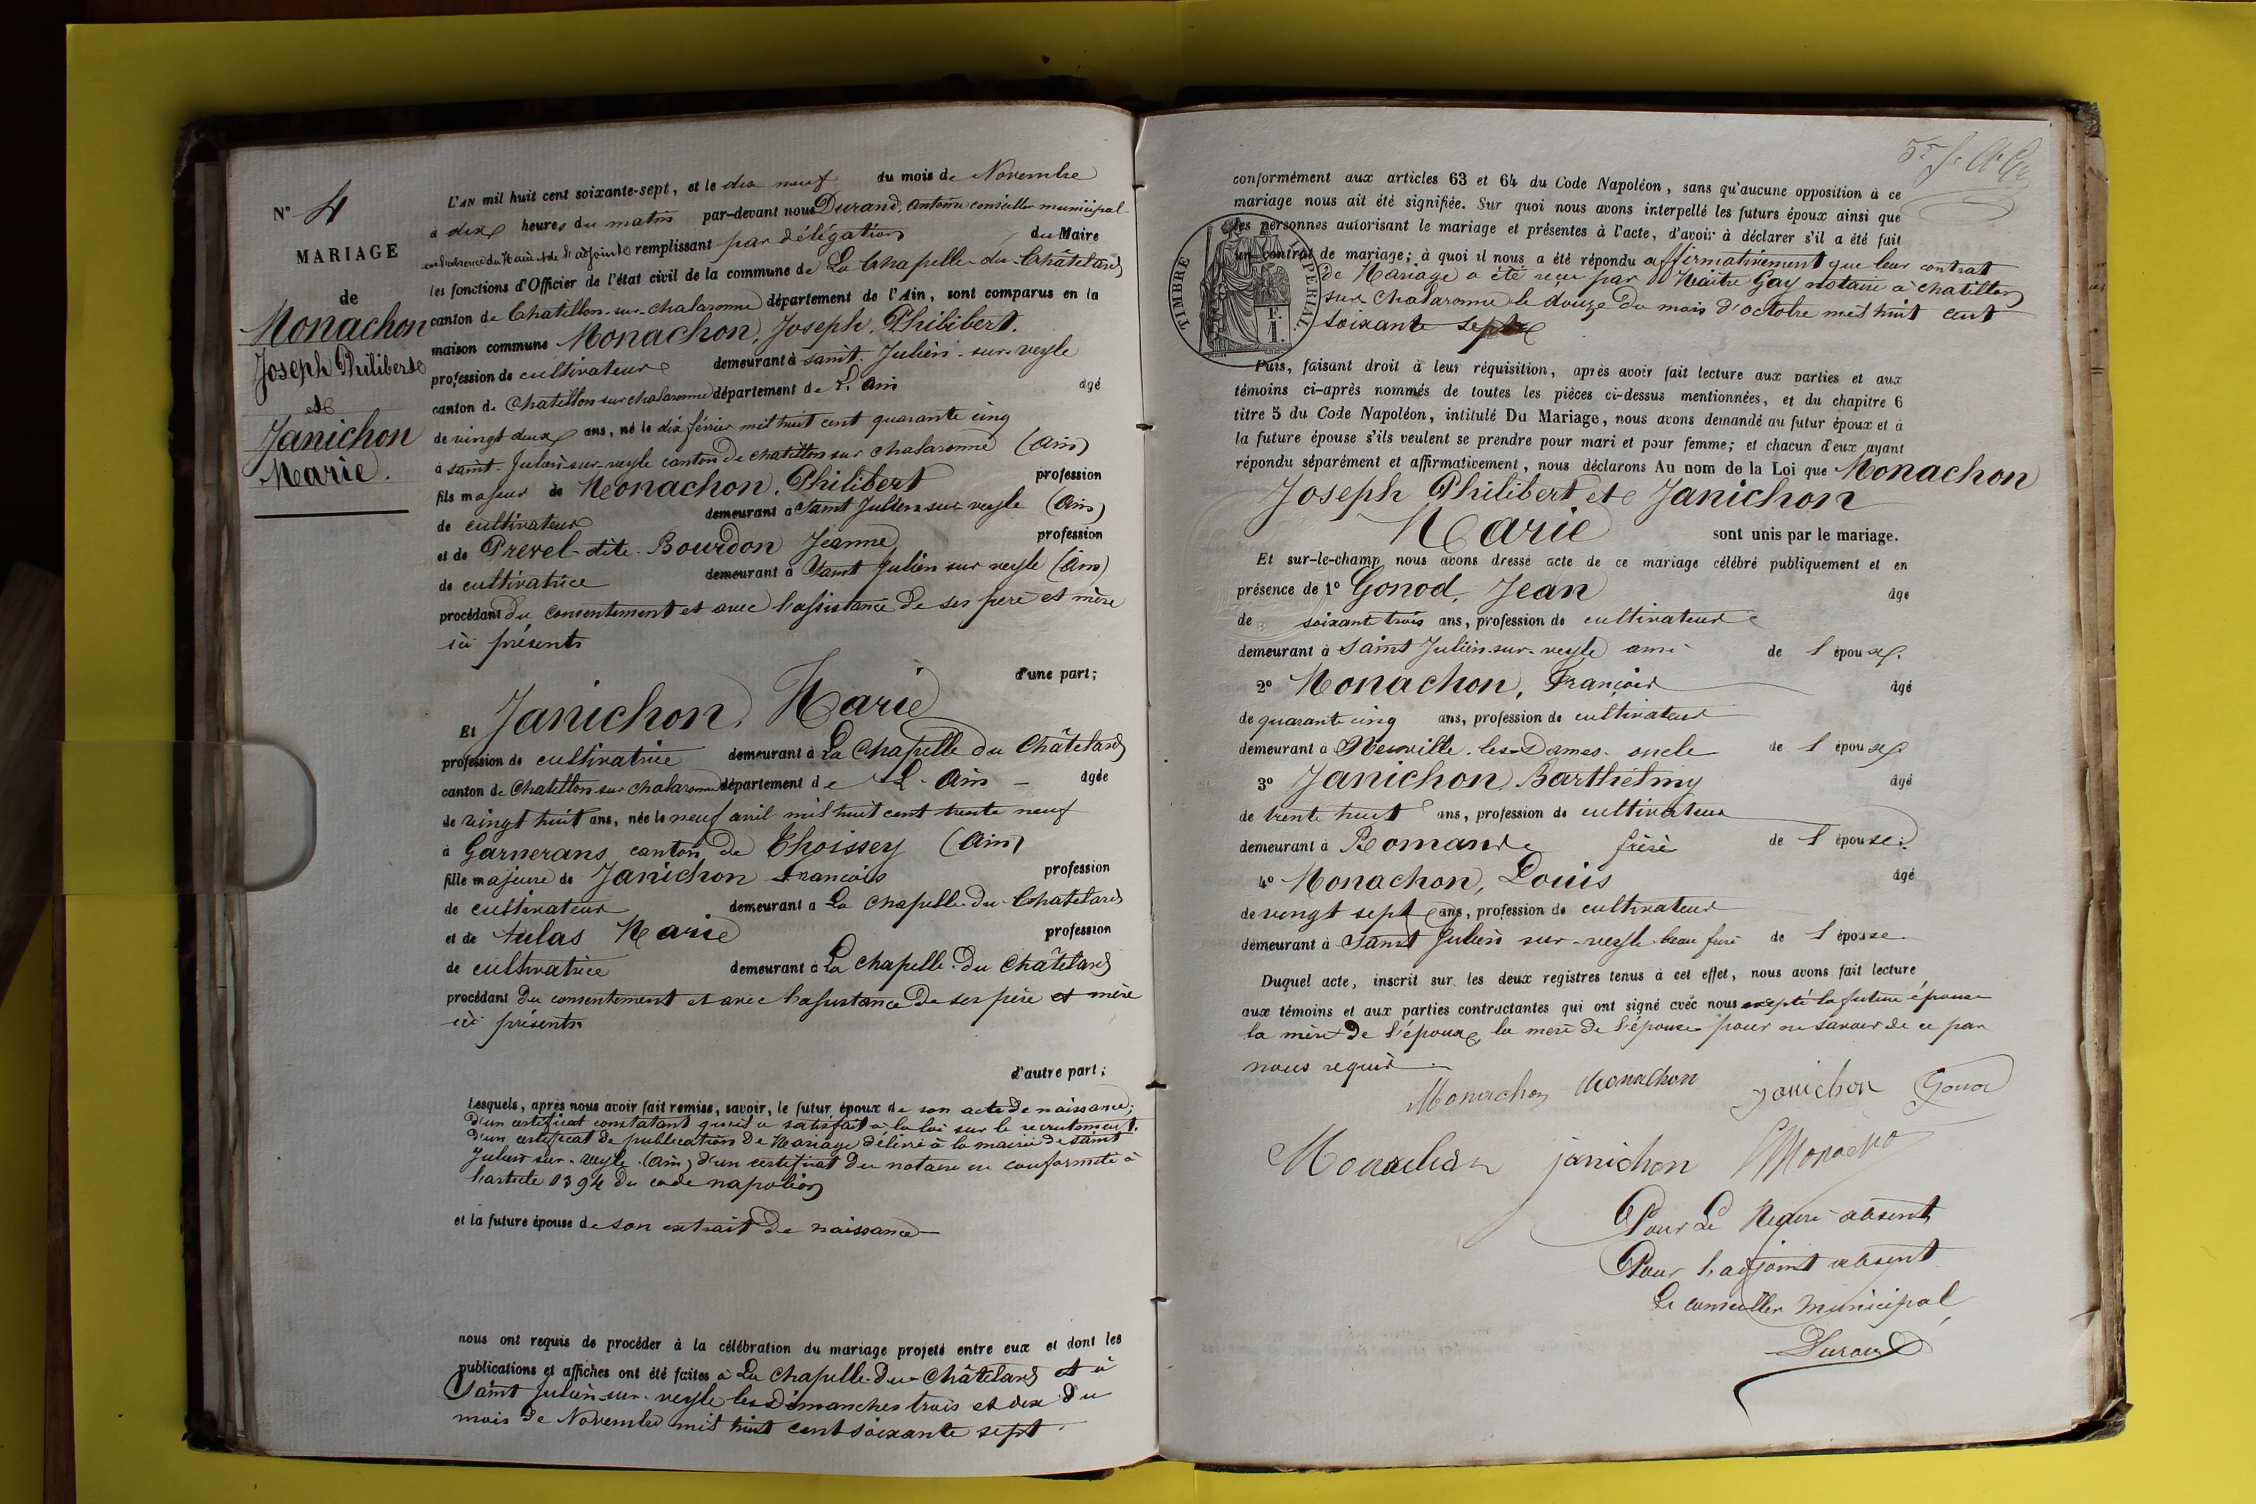 N° 4
MARIAGE
de
Monachon
Joseph Philibert
et
Janichon
Marie.
L'AN mil huit cent soixante-sept, et le dix neuf du mois de Novembre
à dix heures du matin par-devant nous Durand, Antoine conseiller municipal
en l'absence du Maire et de l'adjoint remplissant par délégation du Maire
les fonctions d'Officier de l'état civil de la commune de La Chapelle-du-Chatelard
canton de Chatillon-sur-chalaronne département de l'Ain, sont comparus en la
maison commune Monachon, Joseph, Philibert.
profession de cultivateur demeurant à saint-Julien-sur-veyle
canton de Chatillon sur chalaronne département de L'Ain âgé
de vingt deux ans, né le dix février mil huit cent quarante cinq
à saint-Julien-sur-veyle canton de chatillon sur chalaronne (Ain)
fils majeur de Monachon, Philibert profession
de cultivateur demeurant à Saint Julien sur veyle (Ain)
et de Prevel-dite-Bourdon Jeanne profession
de cultivatrice demeurant à Saint Julien sur veyle (Ain)
procédant du consentement et avec l'assistance de ses père et mère
ici présents
d'une part;
Et Janichon, Marie
profession de cultivatrice demeurant à La Chapelle du Châtelard
canton de Chatillon-sur chalaronne département de L'Ain âgée
de vingt huit ans, née le neuf avril mil huit cent trente neuf
à Garnerans canton de Thoissey (Ain)
fille majeure de Janichon François profession
de cultivateur demeurant à La Chapelle-du-Chatelard
et de Aulas Marie profession
de cultivatrice demeurant à La Chapelle-du Châtelard
procédant du consentement et avec l'assistance de ses père et mère
ici présents
d'autre part;
Lesquels, après nous avoir fait remise, savoir, le futur époux de son acte de naissance;
d'un certificat constatant qu'il a satisfait à la loi sur le recrutement.
d'un certificat de publication de Mariage délivré à la mairie de saint
Julien-sur-veyle (Ain) d'un certificat du notaire en conformité à
l'article 1394 du code napoléon
et la future épouse de son extrait de naissance
nous ont requis de procéder à la célébration du mariage projeté entre eux et dont les
publications et affiches ont été faites à La Chapelle-du-Châtelard et à
Saint Julien-sur-veyle les dimanches trois et dix du
mois de Novembre mil huit cent soixante sept.
conformément aux articles 63 et 64 du Code Napoléon, sans qu'aucune opposition à ce
mariage nous ait été signifiée. Sur quoi nous avons interpellé les futurs époux ainsi que
les personnes autorisant le mariage et présentes à l'acte, d'avoir à déclarer s'il a été fait
un contrat de mariage; à quoi il nous a été répondu affirmativement que leur contrat
de Mariage a été reçu par Maître Gay notaire à chatillon
sur chalaronne le douze du mois d'octobre mil huit cent
soixante sept
TIMBRE IMPERIAL
1 F.
Puis, faisant droit à leur réquisition, après avoir fait lecture aux parties et aux
témoins ci-après nommés de toutes les pièces ci-dessus mentionnées, et du chapitre 6
titre 5 du Code Napoléon, intitulé Du Mariage, nous avons demandé au futur époux et à
la future épouse s'ils veulent se prendre pour mari et pour femme; et chacun d'eux ayant
répondu séparément et affirmativement, nous déclarons Au nom de la Loi que Monachon
Joseph Philibert et Janichon
Marie sont unis par le mariage.
Et sur-le-champ nous avons dressé acte de ce mariage célébré publiquement et en
présence de 1° Gonod, Jean âgé
de soixante trois ans, profession de cultivateur
demeurant à Saint Julien-sur-veyle ami de l'époux.
2° Monachon, François âgé
de quarante cinq ans, profession de cultivateur
demeurant à Neuville-les-Dames oncle de l'époux
3° Janichon Barthélmy âgé
de trente huit ans, profession de cultivateur
demeurant à Romans frère de l'épouse.
4° Monachon, Louis âgé
de vingt sept ans, profession de cultivateur
demeurant à Saint Julien sur-veyle beau frère de l'épouse
Duquel acte, inscrit sur les deux registres tenus à cet effet, nous avons fait lecture
aux témoins et aux parties contractantes qui ont signé avec nous excepté la future épouse
la mère de l'époux, la mère de l'épouse pour ne savoir de ce par
nous requis.
Monachon Monachon Janichon Gonod
Monachon janichon Monachon
Pour Le Maire absent
Pour l'adjoint absent
Le conseiller municipal,
Durand